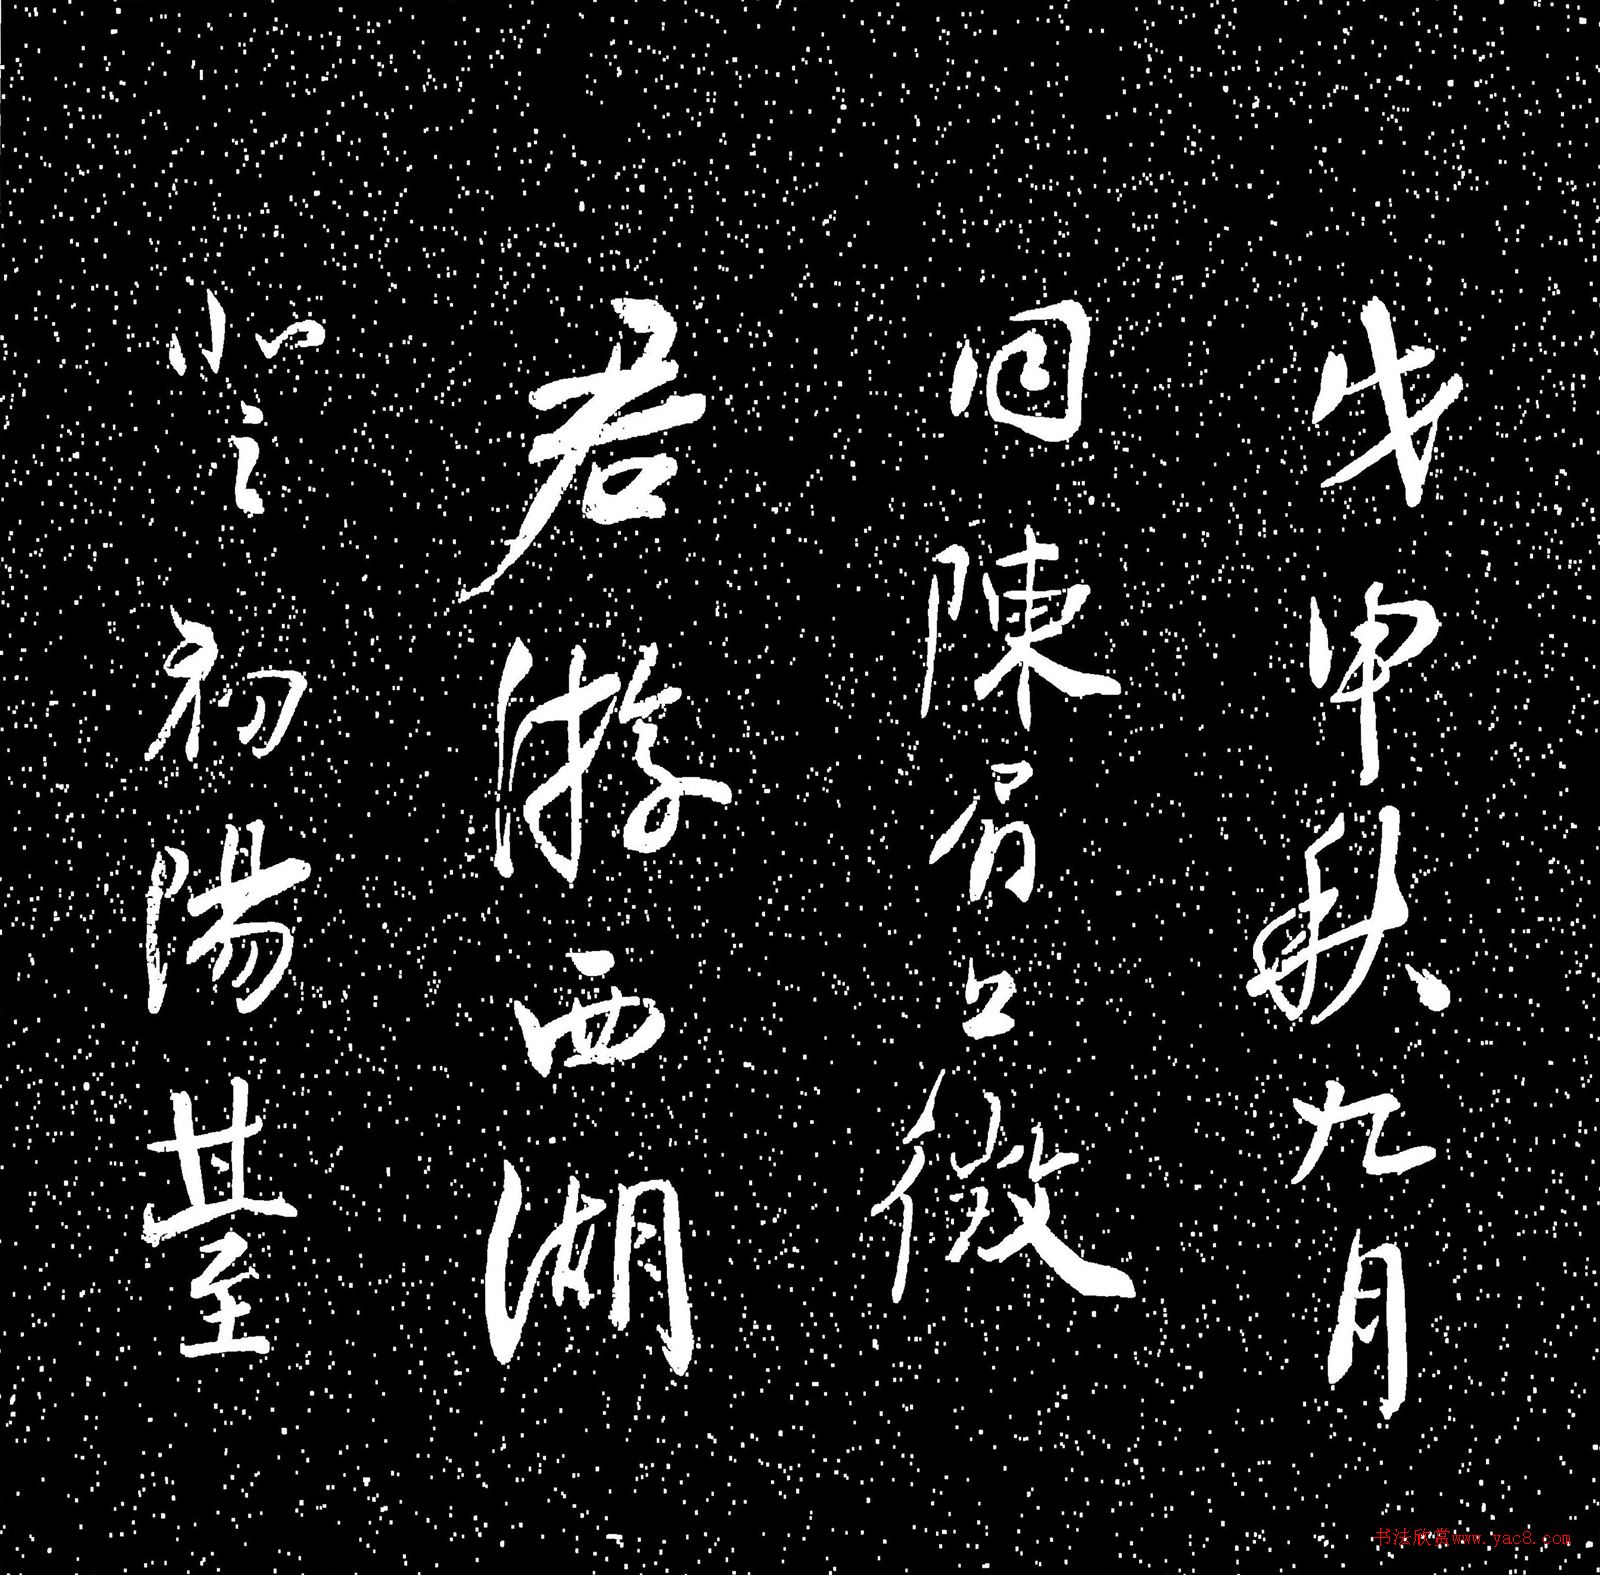 戊申秋九月
同陳眉公徵
君游西湖
登初陽臺
书法欣赏www.yac8.com